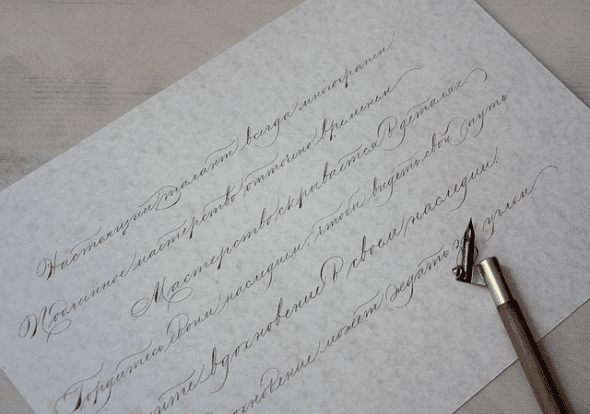 Настоящий талант всегда многогранен
Подлинное мастерство отточено временем
Мастерство скрывается в деталях
Гордитесь своим наследием, чтобы видеть свой путь
вдохновение в своем наследии.
может ждать за углом